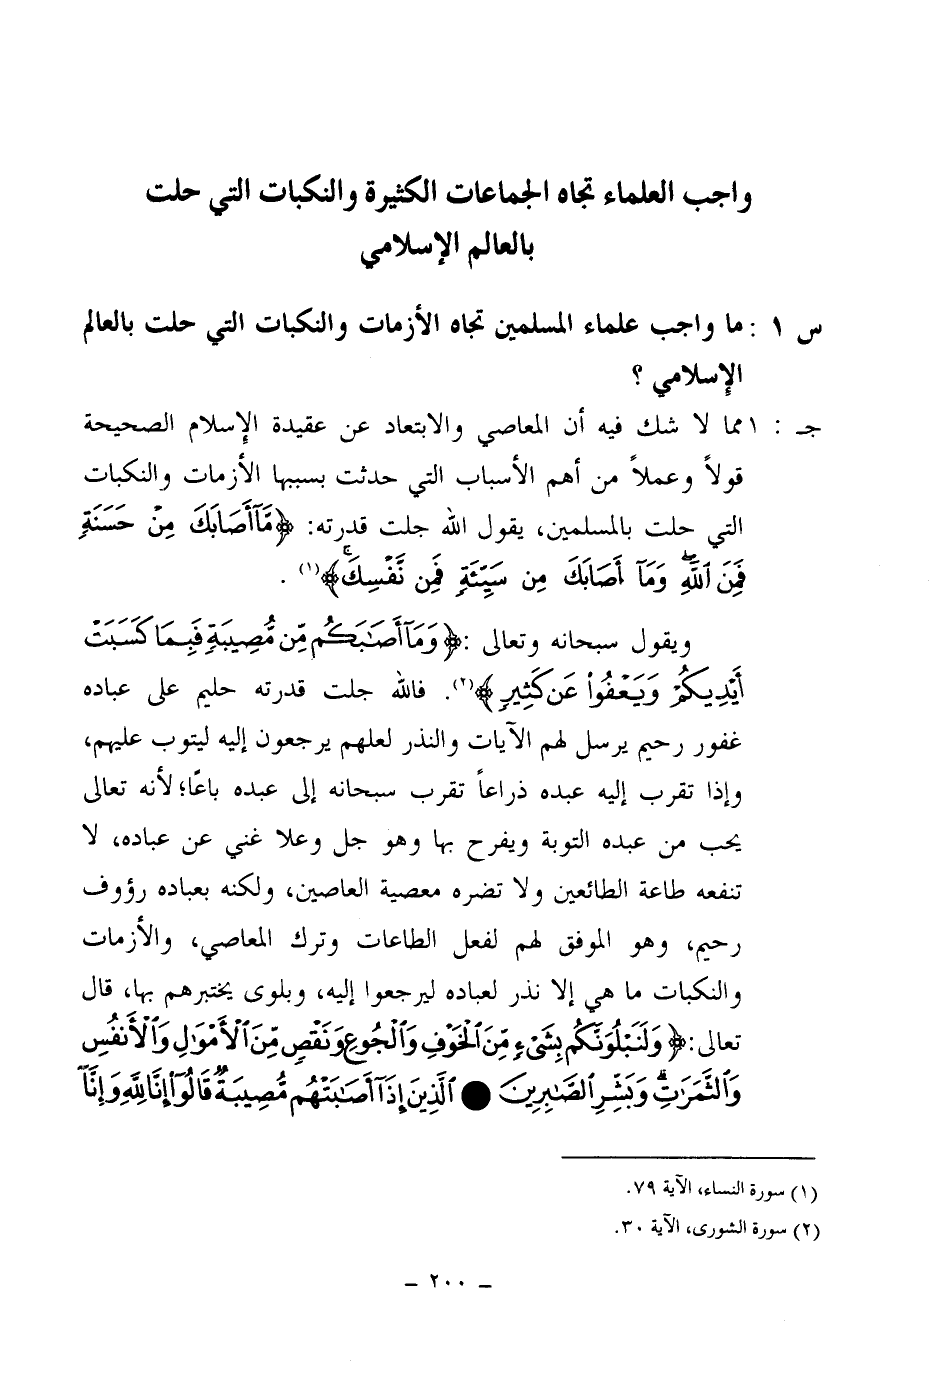 واجب العلماء تجاه الجماعات الكثيرة والنكبات التي حلت
بالعالم الإسلامي
س ١ : ما واجب علماء المسلمين تجاه الأزمات والنكبات التي حلت بالعالم
الإسلامي ؟
جـ : ١مما لا شك فيه أن المعاصي والابتعاد عن عقيدة الإسلام الصحيحة
قولاً وعملاً من أهم الأسباب التي حدثت بسببها الأزمات والنكبات
التي حلت بالمسلمين، يقول الله جلت قدرته: ﴿مَّآ أَصَابَكَ مِنْ حَسَنَةٍ
فَمِنَ ٱللَّهِۖ وَمَآ أَصَابَكَ مِن سَيِّئَةٍ فَمِن نَّفْسِكَۚ﴾(١) .
ويقول سبحانه وتعالى :﴿وَمَآ أَصَٰبَكُم مِّن مُّصِيبَةٍ فَبِمَا كَسَبَتْ
أَيْدِيكُمْ وَيَعْفُوا۟ عَن كَثِيرٍ﴾(٢). فالله جلت قدرته حليم على عباده
غفور رحيم يرسل لهم الآيات والنذر لعلهم يرجعون إليه ليتوب عليهم،
وإذا تقرب إليه عبده ذراعاً تقرب سبحانه إلى عبده باعًا؛ لأنه تعالى
يحب من عبده التوبة ويفرح بها وهو جل وعلا غني عن عباده، لا
تنفعه طاعة الطائعين ولا تضره معصية العاصين، ولكنه بعباده رؤوف
رحيم، وهو الموفق لهم لفعل الطاعات وترك المعاصي، والأزمات
والنكبات ما هي إلا نذر لعباده ليرجعوا إليه، وبلوى يختبرهم بها، قال
تعالى:﴿وَلَنَبْلُوَنَّكُم بِشَىْءٍ مِّنَ ٱلْخَوْفِ وَٱلْجُوعِ وَنَقْصٍ مِّنَ ٱلْأَمْوَٰلِ وَٱلْأَنفُسِ
وَٱلثَّمَرَٰتِۗ وَبَشِّرِ ٱلصَّٰبِرِينَ ● ٱلَّذِينَ إِذَآ أَصَٰبَتْهُم مُّصِيبَةٌ قَالُوٓا۟ إِنَّا لِلَّهِ وَإِنَّآ
(١) سورة النساء، الآية ٧٩.
(٢) سورة الشورى، الآية ٣٠.
– ٢٠٠ –